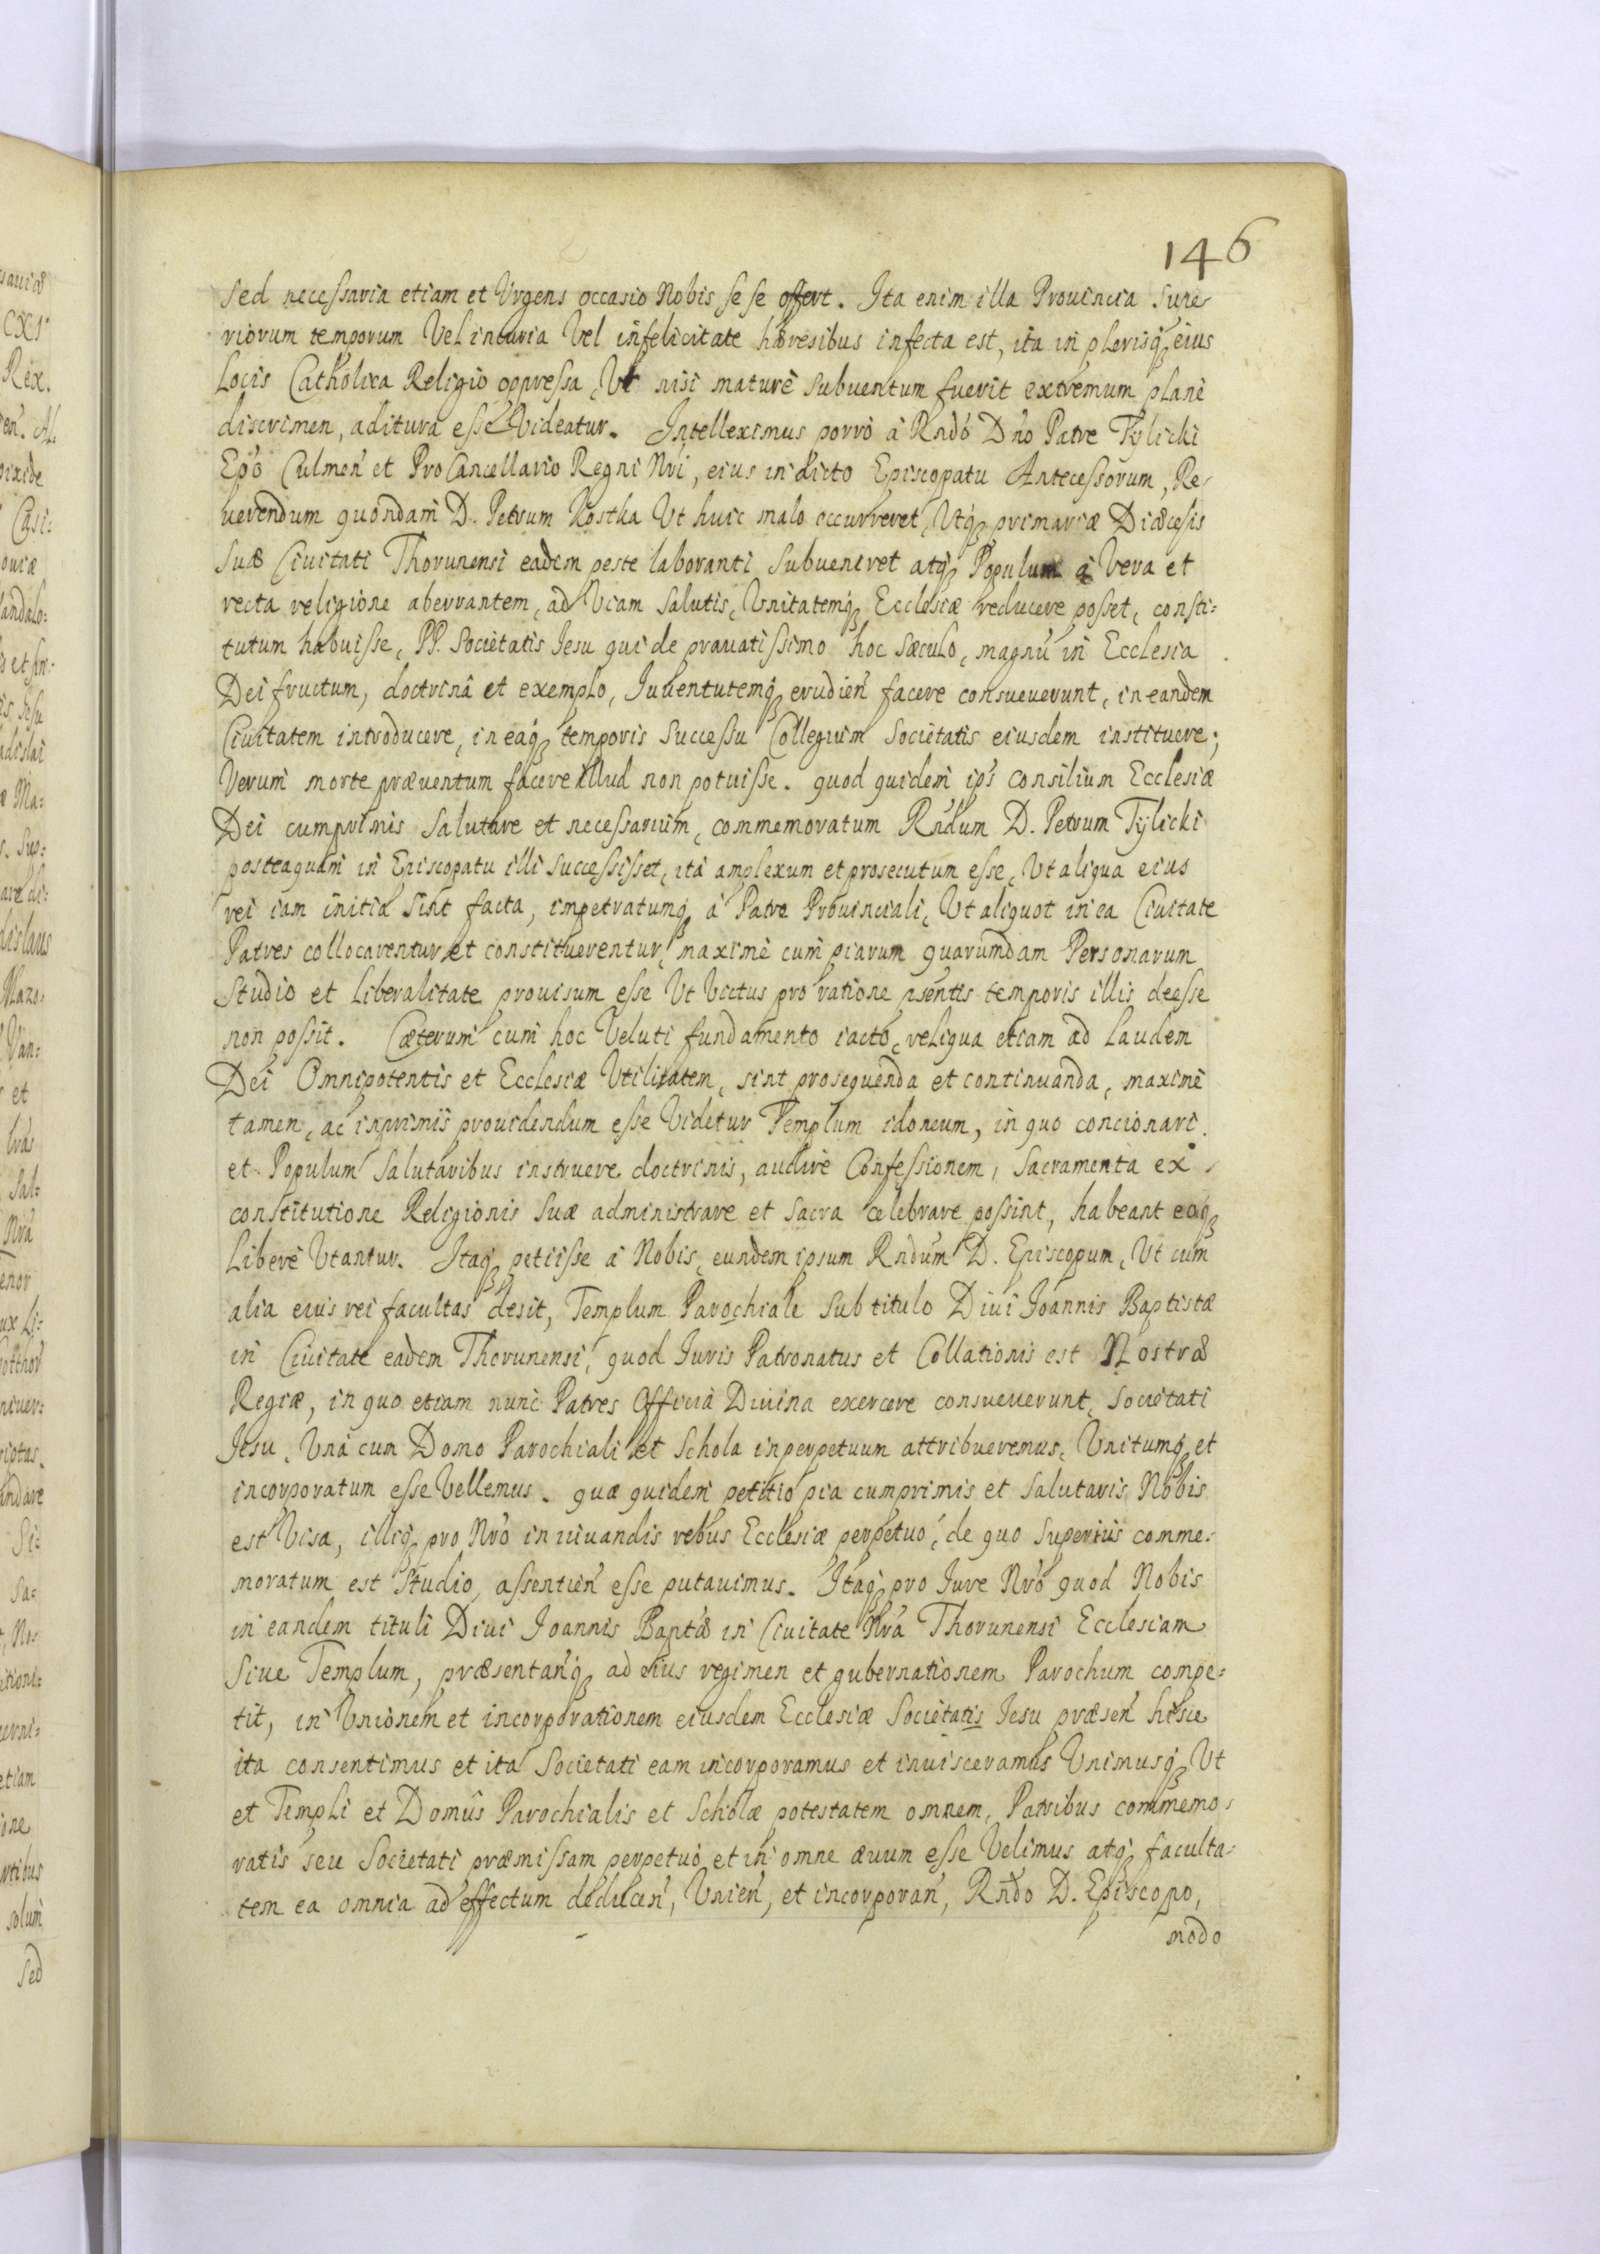 146
sed necessaria etiam et Vrgens occasio Nobis se se offert. Ita enim illa Prouincia supe-
riorum temporum Vel incuria Vel infelicitate hæresibus infecta est, ita in plerisq; eius
Locis Catholica Religio oppressa, Vt nisi maturè subuentum fuerit extremum planè
discrimen, aditura esse Videatur. Intelleximus porrò à Rndo Dno Patre Tylicki
Epo Culmen et ProCancellario Regni Nri, eius in dicto Episcopatu Antecessorum, Re-
uerendum quondam D. Petrum Kostka Vt huic malo occurreret, Vtq; primariæ Diæcesis
suæ Ciuitati Thorunensi eadem peste laboranti subueniret atq; Populum à Vera et
recta religione aberrantem, ad Viam salutis, Vnitatemq; Ecclesiæ reducere posset, consti=
tutum habuisse, PP. Societatis Iesu qui de prauatissimo hoc sæculo, magnu in Ecclesia
Dei fructum, doctrinâ et exemplo, Iuuentutemq; erudien facere consueuerunt, in eandem
Ciuitatem introducere, in eaq; temporis successu Collegium Societatis eiusdem instituere;
Verum morte præuentum facere illud non potuisse. quod quidem ips consilium Ecclesiæ
Dei cumprimis salutare et necessarium, commemoratum Rndum D. Petrum Tylicki
posteaquam in Episcopatu illi successisset, ita amplexum et prosecutum esse, Vt aliqua eius
rei iam initia sint facta, impetratumq; à Patre Prouinciali, Vt aliquot in ea Ciuitate
Patres collocarentur et constituerentur, maximè cum piarum quarumdam Personarum
studio et liberalitate prouisum esse Vt Victus pro ratione psentis temporis illis deesse
non possit. Cæterum cum hoc Veluti fundamento iacto, reliqua etiam ad laudem
Dei Omnipotentis et Ecclesiæ Vtilitatem, sint prosequenda et continuanda, maximè
tamen, ac inprimis prouidendum esse Videtur Templum idoneum, in quo concionari
et Populum salutaribus instruere doctrinis, audire Confessionem, Sacramenta ex
constitutione Religionis suæ administrare et sacra celebrare possint, habeant eaq;
Liberè Vtantur. Itaq; petiisse à Nobis, eundem ipsum Rndum D. Episcopum, Vt cum
alia eius rei facultas desit, Templum Parochiale sub titulo Diui Ioannis Baptistæ
in Ciuitate eadem Thorunensi, quod Iuris Patronatus et Collationis est Nostræ
Regiæ, in quo etiam nunc Patres Officia Diuina exercere consueuerunt, Societati
Iesu, Vnà cum Domo Parochiali et Schola inperpetuum attribueremus, Vnitumq; et
incorporatum esse Vellemus. quæ quidem petitio pia cumprimis et salutaris Nobis
est Visa, illiq; pro Nro in iuuandis rebus Ecclesiæ perpetuo, de quo superius comme-
moratum est studio, assentien esse putauimus. Itaq; pro Iure Nro quod Nobis
in eandem tituli Diui Ioannis Baptæ in Ciuitate Nra Thorunensi Ecclesiam
siue Templum, præsentanq; ad eius regimen et gubernationem Parochum compe=
tit, in Vnionem et incorporationem eiusdem Ecclesiæ Societatis Iesu præsen hisce
ita consentimus et ita Societati eam incorporamus et inuisceramus Vnimusq; Vt
et Templi et Domûs Parochialis et Scholæ potestatem omnem, Patribus commemo-
ratis seu Societati præmissam perpetuò et in omne æuum esse Velimus atq; faculta-
tem ea omnia ad effectum deducen, Vnien, et incorporan, Rndo D. Episcopo,
modo